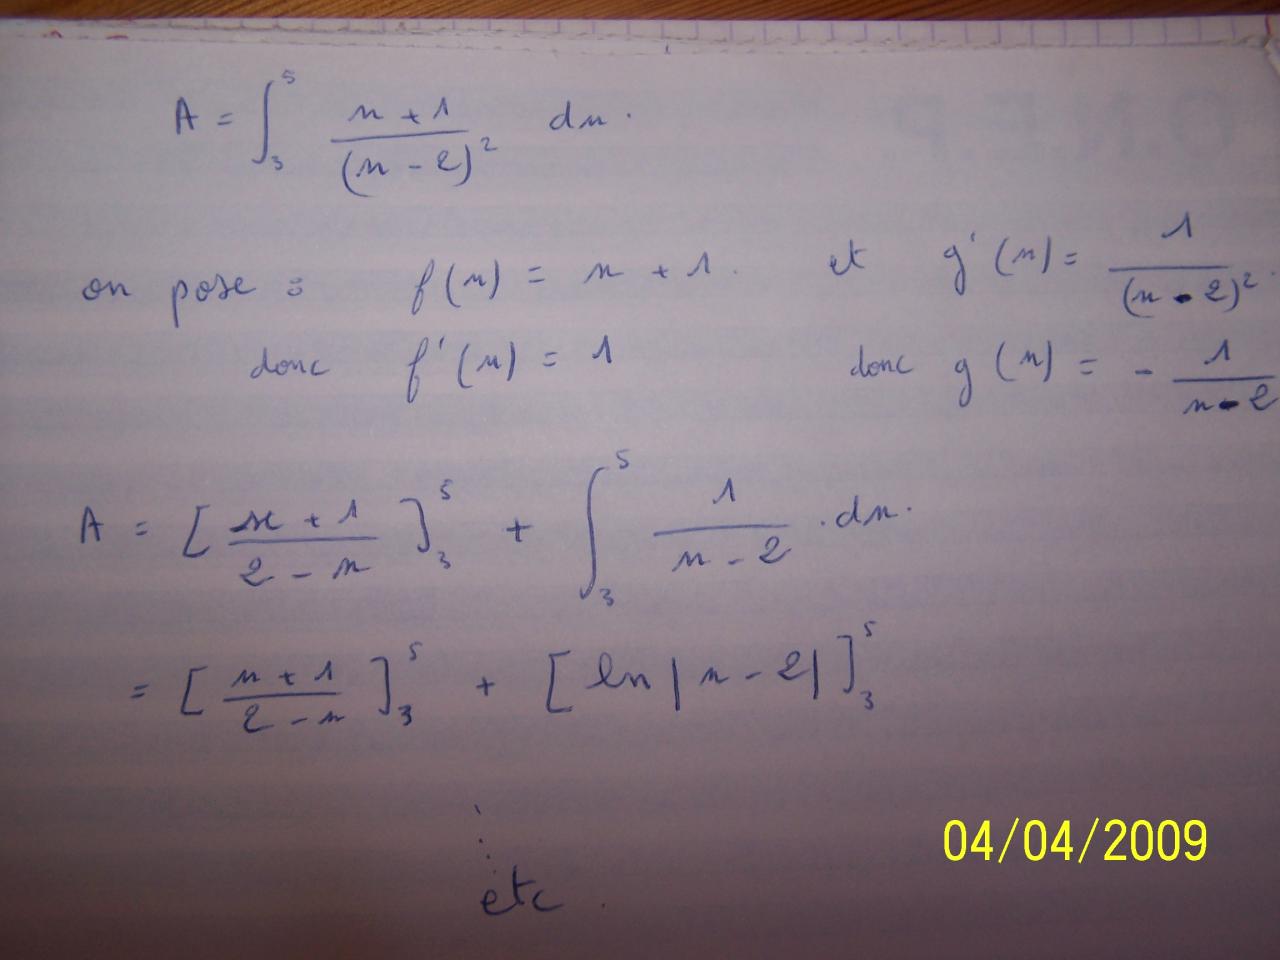 A = ∫₃⁵ (x + 1)/(x - 2)² dx.
on pose : f(x) = x + 1. et g'(x) = 1/(x - 2)².
donc f'(x) = 1 donc g(x) = - 1/(x - 2)
A = [(x + 1)/(2 - x)]₃⁵ + ∫₃⁵ 1/(x - 2) .dx.
= [(x + 1)/(2 - x)]₃⁵ + [ln|x - 2|]₃⁵
⋮
etc.
04/04/2009